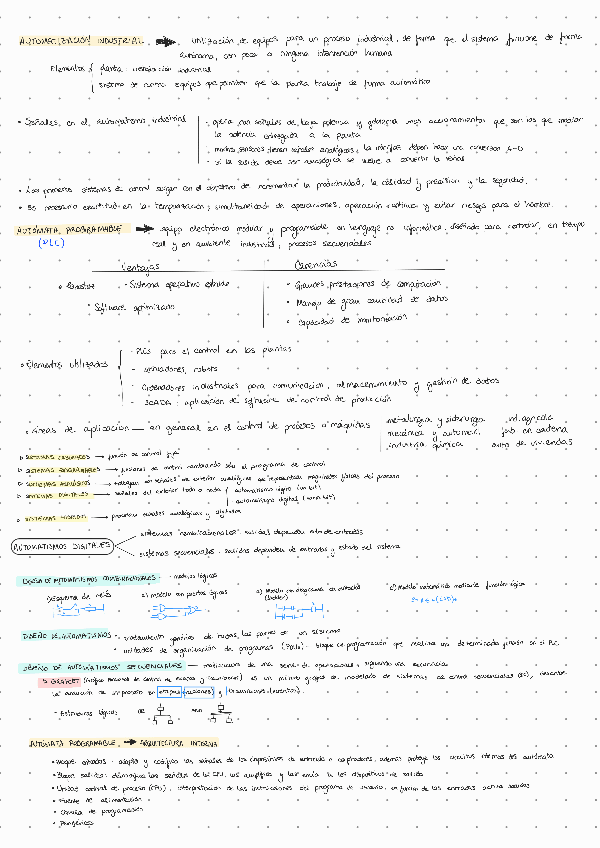 AUTOMATIZACIÓN INDUSTRIAL → utilización de equipos para un proceso industrial, de forma que el sistema funcione de forma
autónoma, con poca o ninguna intervención humana
Elementos planta: instalación industrial
sistema de control: equipos que permiten que la planta trabaje de forma automática
• Señales, en el automatismo industrial • opera con señales de baja potencia y gobierna unos accionamientos que son los que modulan
la potencia entregada a la planta
• muchos sensores tienen señales analógicas, la interfaz deben hacer una conversión A-D
• si la salida debe ser analógica se vuelve a convertir la señal
• Los primeros sistemas de control surgen con el objetivo de incrementar la productividad, la calidad y precisión y la seguridad.
• Es necesario exactitud en la temporización, simultaneidad de operaciones, operación continua y evitar riesgos para el hombre.
AUTÓMATA PROGRAMABLE → equipo electrónico modular y programable en lenguaje no informático, diseñado para controlar, en tiempo
(PLC) real y en ambiente industrial, procesos secuenciales.
Ventajas Carencias
• Robustez • Sistema operativo estable • Grandes prestaciones de computación
• Software optimizado • Manejo de gran cantidad de datos
• Capacidad de monitorización
• Elementos utilizados • PLCs para el control en las plantas
• Actuadores, robots
• Ordenadores industriales para comunicación, almacenamiento y gestión de datos
• SCADA: aplicación de software de control de producción
• Áreas de aplicación — en general en el control de procesos o máquinas metalurgia y siderurgia ind. agrícola
mecánica y automoc. fab. en cadena
industria química auto. de viviendas
SISTEMAS CABLEADOS → función de control fija
SISTEMAS PROGRAMABLES → funciones de control cambiando sólo el programa de control
SISTEMAS ANALÓGICOS → trabajan con señales del exterior analógicas que representan magnitudes físicas del proceso
SISTEMAS DIGITALES → señales del exterior todo o nada automatismo lógico (un bit)
automatismo digital (varios bit)
SISTEMAS HÍBRIDOS → procesan señales analógicas y digitales
AUTOMATISMOS DIGITALES sistemas "combinacionales": salidas dependen sólo de entradas
sistemas secuenciales: salidas dependen de entradas y estado del sistema
DISEÑO DE AUTOMATISMOS COMBINACIONALES • modelos lógicos
1) Esquema de relés 2) modelo con puertas lógicas 3) Modelo con diagrama de contactos c) Modelo matemático mediante función lógica
(ladder)
DISEÑO DE AUTOMATISMOS • tratamiento gráfico de todas las partes de un sistema
• unidades de organización de programas (POUs): bloque de programación que realiza una determinada función en el PLC
DISEÑO DE AUTOMATISMOS SECUENCIALES — realización de una serie de operaciones siguiendo una secuencia
GRAFCET (Gráfico Funcional de Control de Etapas y Transiciones) es un método gráfico de modelado de sistemas de control secuenciales (SC), describe
la evolución de un proceso en etapas (acciones) y transiciones (eventos).
• Estructuras lógicas OR AND
AUTÓMATA PROGRAMABLE → ARQUITECTURA INTERNA
• Bloque entradas: adapta y codifica las señales de los dispositivos de entrada o captadores, además protege los circuitos internos del autómata
• Bloque salidas: decodifica las señales de la CPU, las amplifica y las envía a los dispositivos de salida
• Unidad central de proceso (CPU): interpretación de las instrucciones del programa de usuario, en función de las entradas activa salidas
• Fuente de alimentación
• Consola de programación
• Periféricos